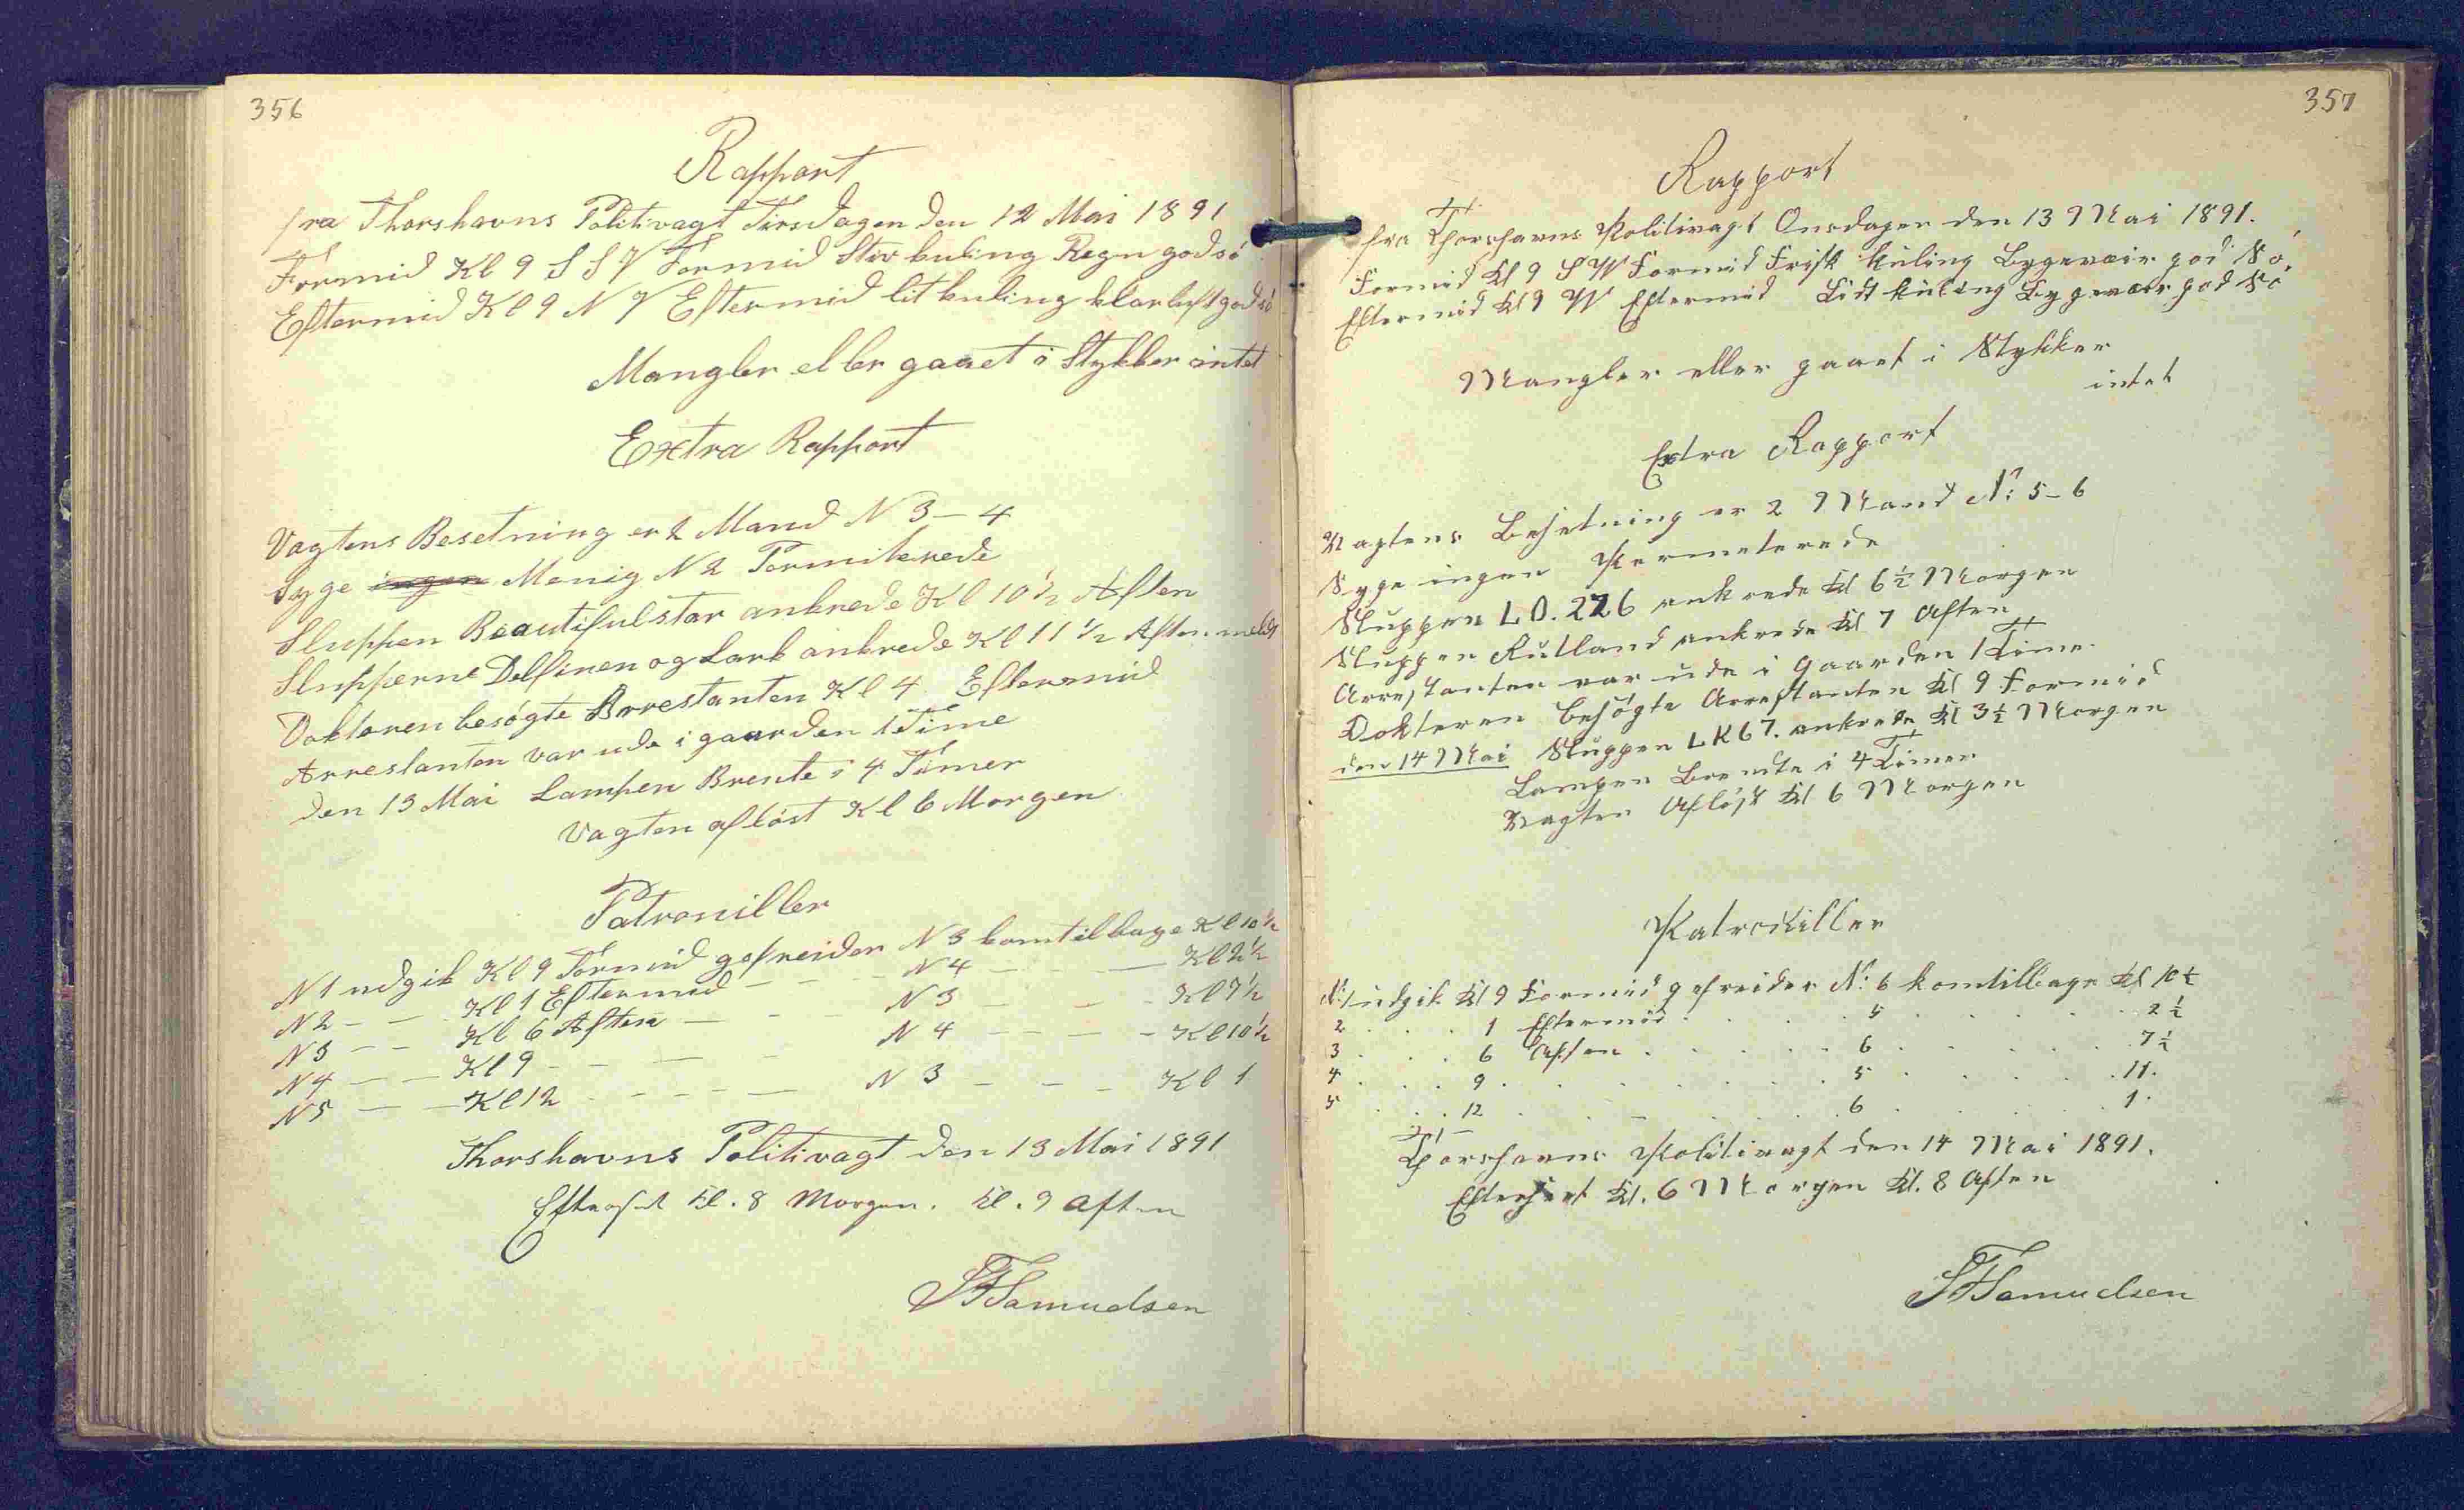 356
Rapport
fra Thorshavns Politivagt Tirsdagen den 12 Mai 1891
Formid Kl 9 S S V Formid Stiv kuling Regn god só
Eftermid Kl 9 N V Eftermid lit kuling klarluft god só
Mangler eller gaaet i Stykker intet
Extra Rapport
Vagtens Besetning er 2 Mand N 3 – 4
Syge ingen Menig N 2 Permiterede
Sluppen Beautifulstar ankrede Kl 10 1/2 Aften
Slupperne Delfinen og Lark ankrede Kl 11 1/2 Aften meldt
Doktoren besógte Arrestanten Kl 4 Eftermid
Arrestanten var ude i gaarden 1 Time
den 13 Mai Lampen Brente i 4 Timer
Vagten aflóst Kl 6 Morgen
Patrouiller
N 1 udgik Kl 9 Formid gefreider N 3 kom tilbage Kl 10 1/2
N 2 – – Kl 1 Eftermid – – – N 4 – – – Kl 2 1/2
N 3 – – Kl 6 Aften – – – N 3 – – – Kl 7 1/2
N 4 – – Kl 9 – – – – N 4 – – – – Kl 10 1/2
N 5 – – Kl 12 – – – – N 3 – – – Kl 1
Thorshavns Politivagt den 13 Mai 1891
Efterset Kl. 8 Morgen. Kl. 9 Aften
SFSamuelsen
357
Rapport
fra Thorshavns Politivagt Onsdagen den 13 Mai 1891.
Formid Kl 9 S W Formid Frisk kuling Bygeveir god Só,
Eftermid Kl 9 W Eftermid Lidt kuling Bygeveir god Só
Mangler eller gaaet i Stykker
intet
Extra Rapport
Vagtens Besetning er 2 Mand No: 5 – 6
Syge ingen Permeterede
Sluppen L O. 226 ankrede Kl 6 1/2 Morgen
Sluppen Rutland ankrede Kl 7 Aften
Arrestanten var ude i Gaarden 1 Time.
Dokteren besógte Arrestanten Kl 9 Formid
den 14 Mai Sluppen L K 67. ankrede Kl 3 1/2 Morgen
Lampen Brendte i 4 Timer
Vagten Aflóst Kl 6 Morgen
Patrouiller
No: 1 udgik Kl 9 Formid gefreider No: 6 kom tilbage Kl 10 1/2
2 . . . 1 Eftermid . . . . 5 . . . . . 2 1/2
3 . . . 6 Aften . . . . . 6 . . . . . 7 1/2
4 . . . 9 . . . . . . . 5 . . . . . 11.
5 . . . 12 . . . . . . . 6 . . . . . 1.
Thorshavns Politivagt den 14 Mai 1891.
Efterset Kl. 6 Morgen Kl. 8 Aften
SFSamuelsen